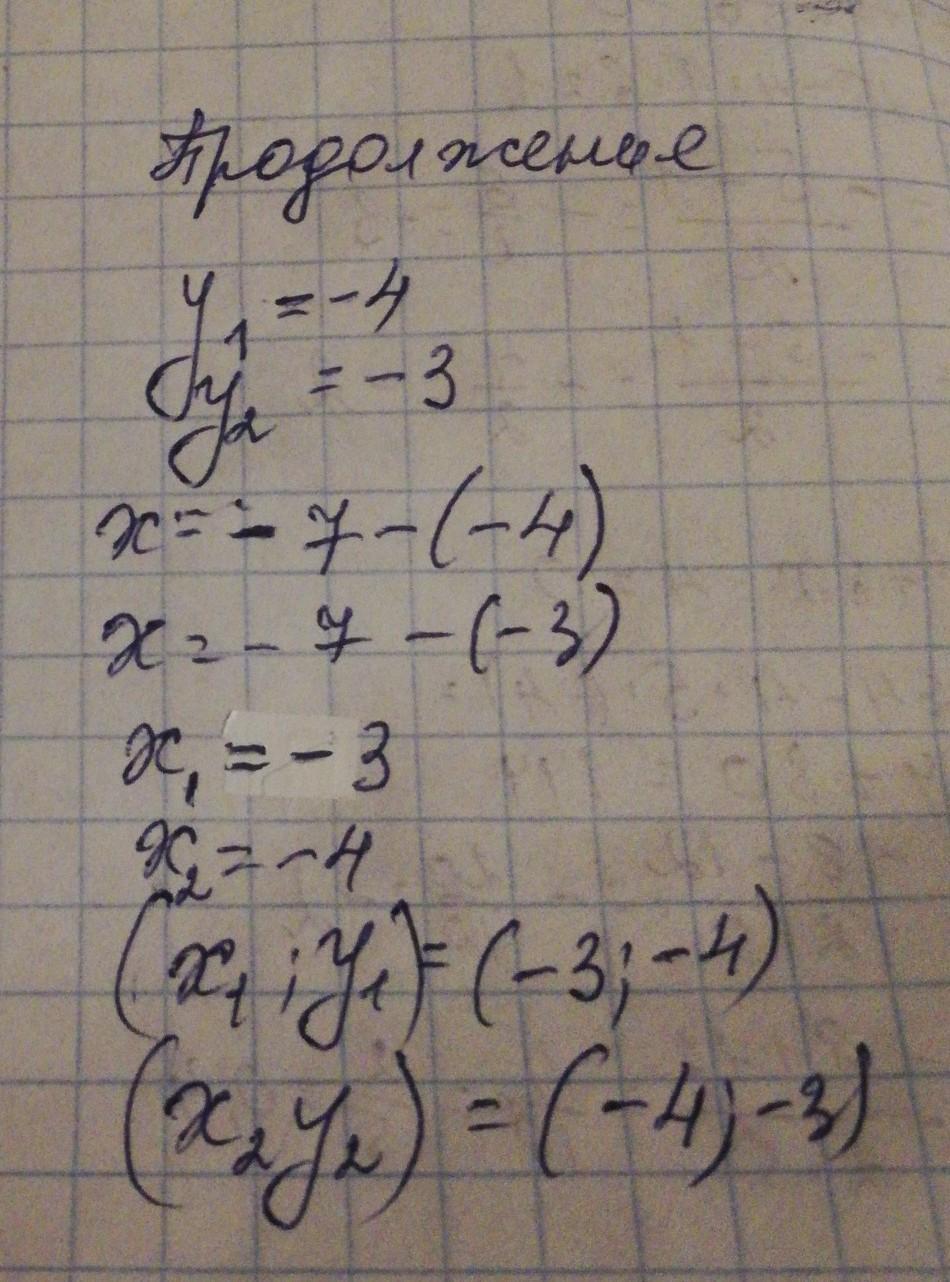 Продолжение
y₁ = -4
y₂ = -3
x = - 7 - (-4)
x = - 7 - (-3)
x₁ = - 3
x₂ = -4
(x₁ ; y₁) = (-3; -4)
(x₂ y₂) = (-4; -3)